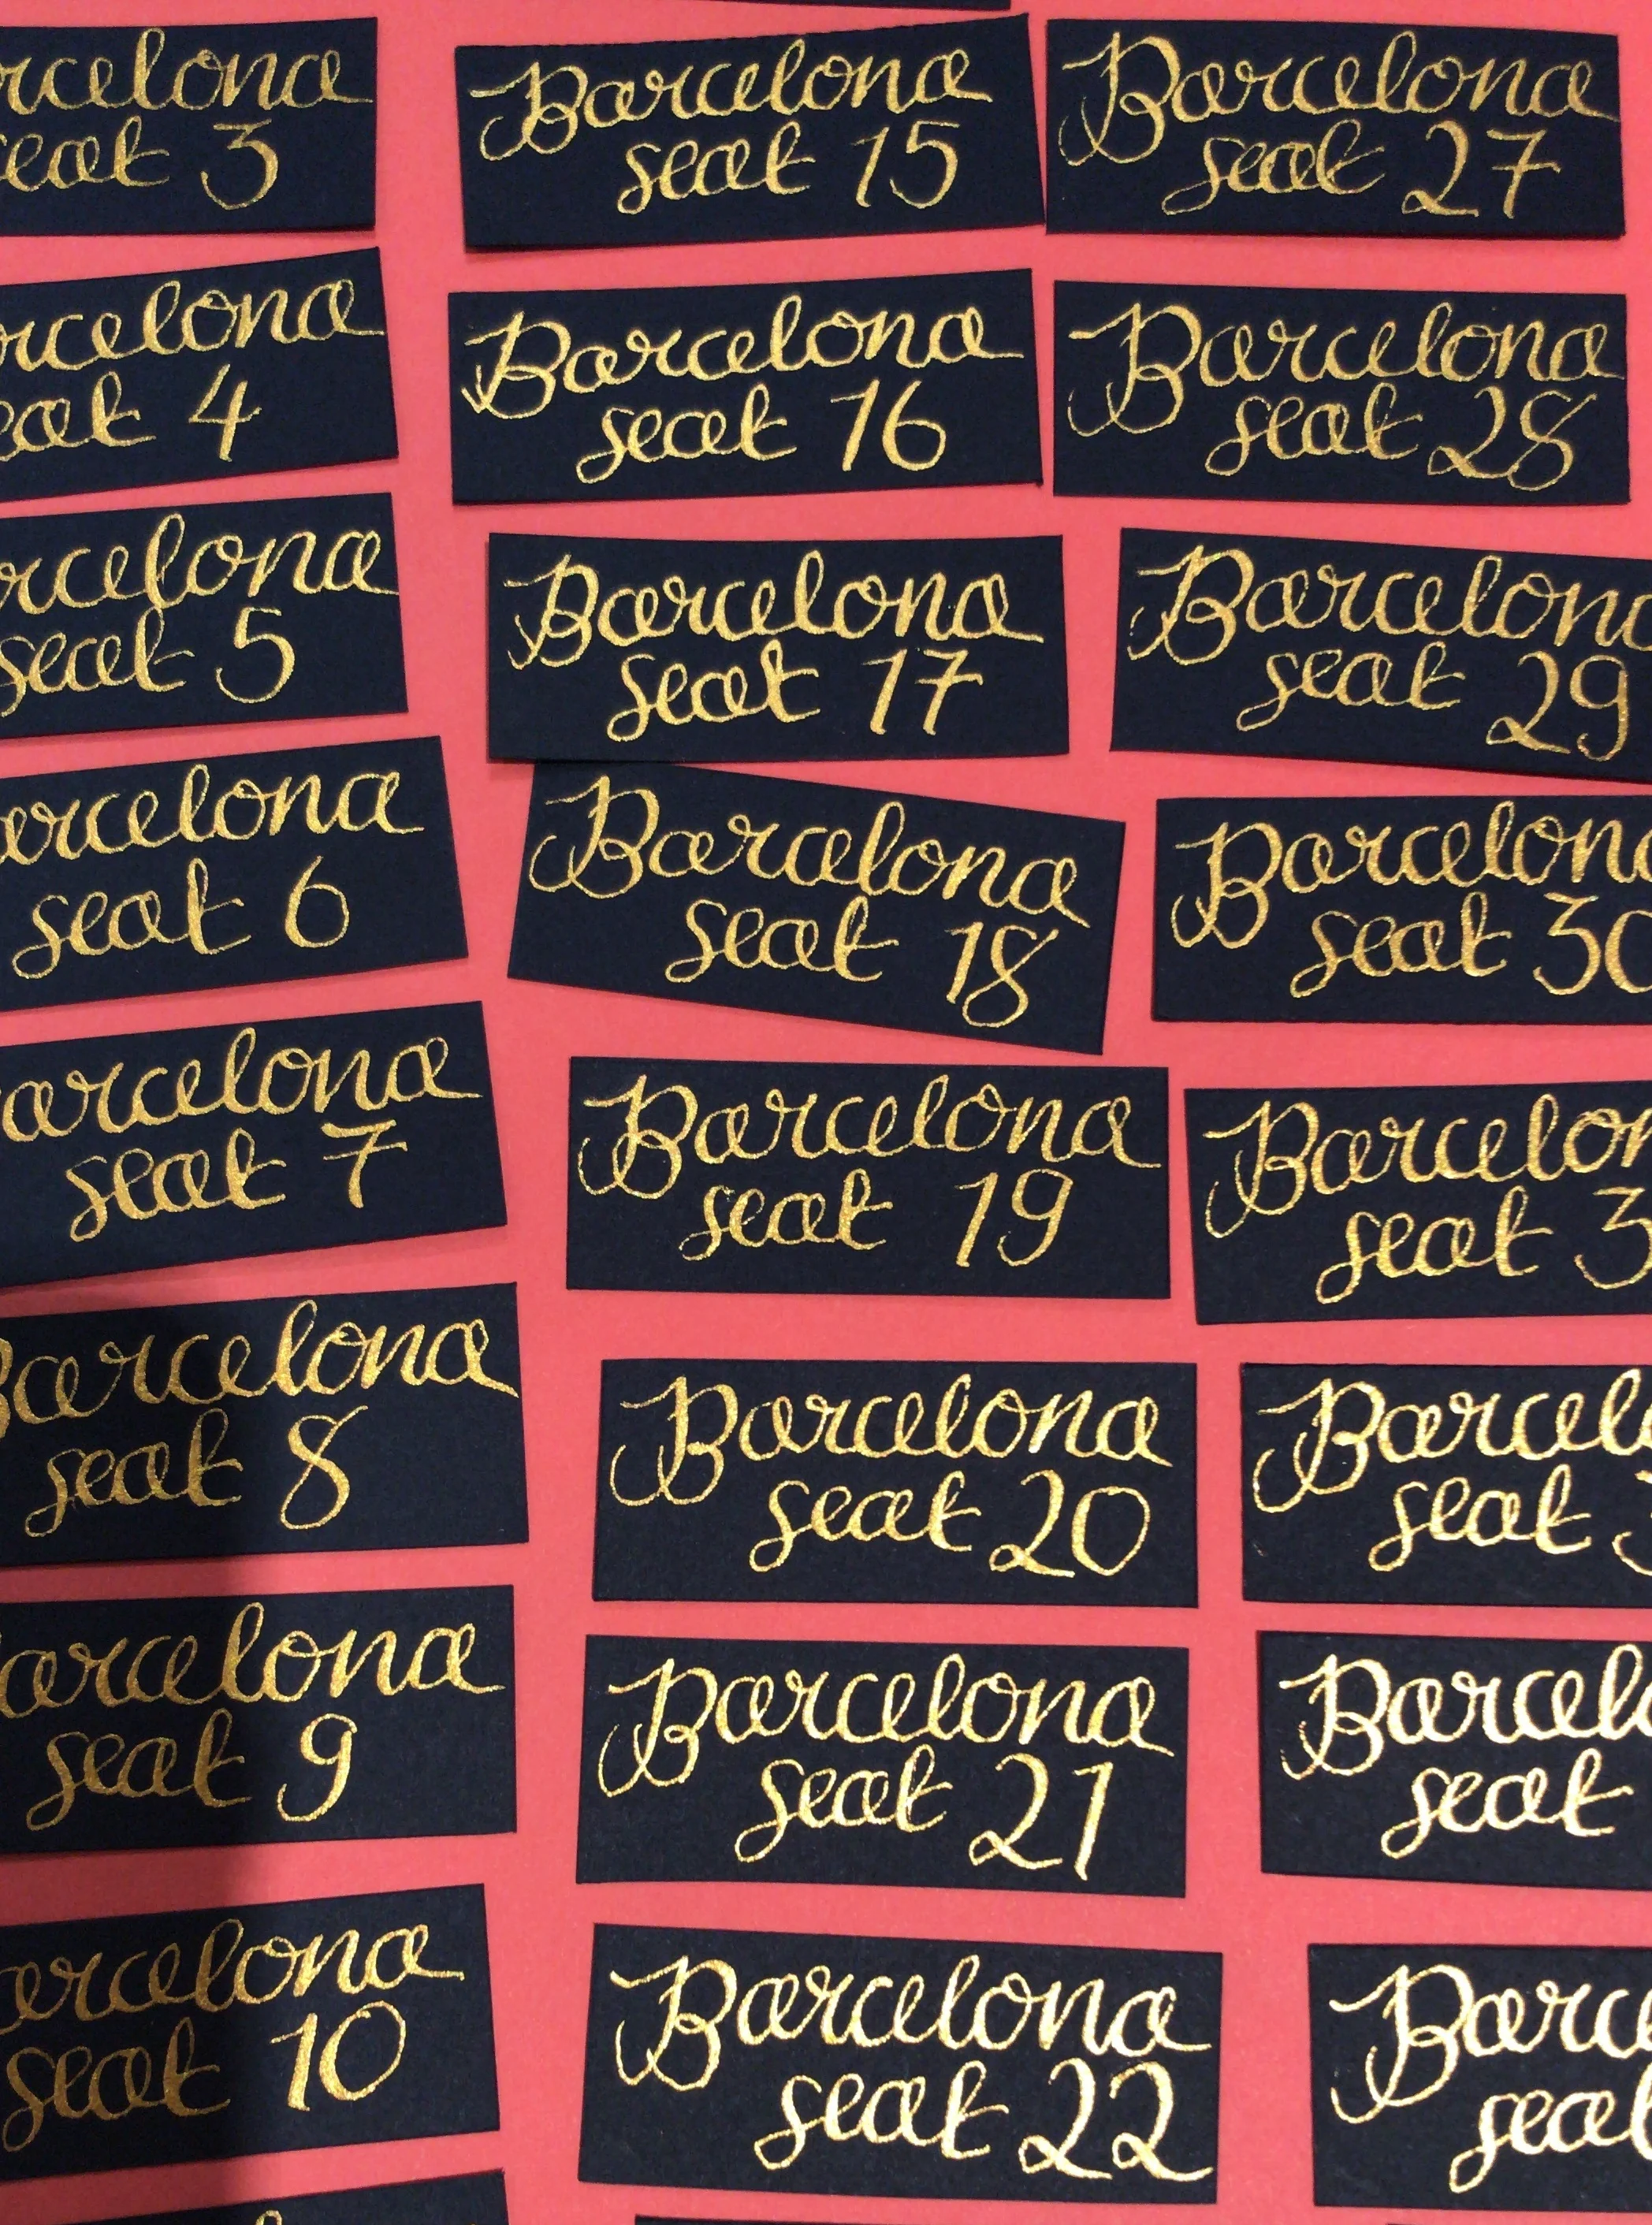 rcelona
seat 3
rcelona
eat 4
rcelona
seat 5
arcelona
seat 6
arcelona
seat 7
Barcelona
seat 8
arcelona
seat 9
arcelona
seat 10
Barcelona
seat 15
Barcelona
seat 16
Barcelona
seat 17
Barcelona
seat 18
Barcelona
seat 19
Barcelona
seat 20
Barcelona
seat 21
Barcelona
seat 22
Barcelona
seat 27
Barcelona
seat 28
Barcelona
seat 29
Barcelona
seat 30
Barcelon
seat 3
Barcel
seat
Barcel
seat
Barc
seat